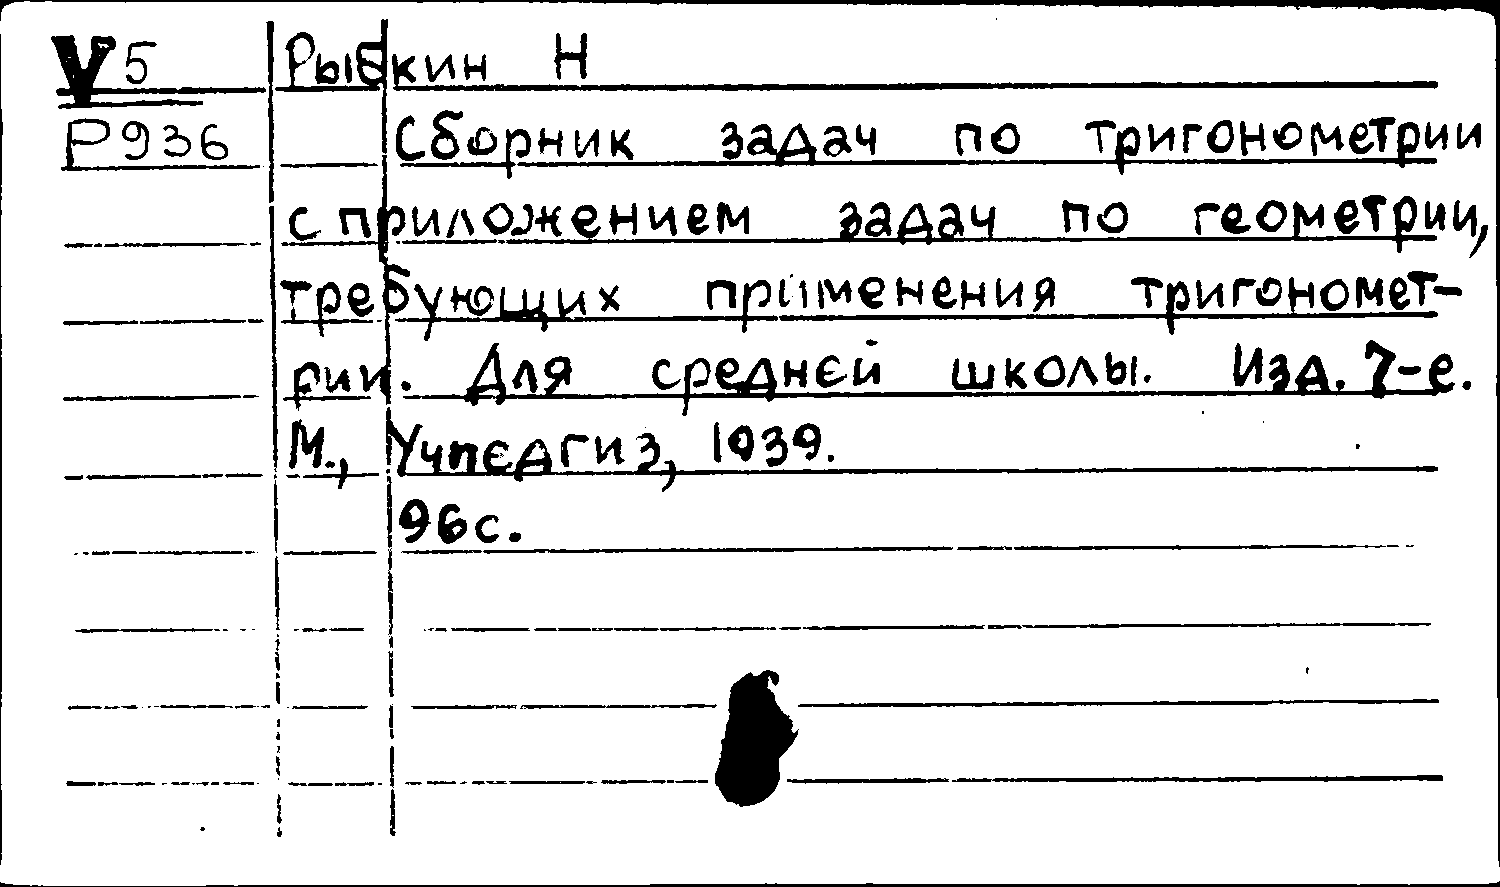 V5 Рыбкин Н
Р936 Сборник задач по тригонометрии
с приложением задач по геометрии,
требующих применения тригономет-
рии. Для средней школы. Изд. 7-е.
М., Учпедгиз, 1939.
96с.